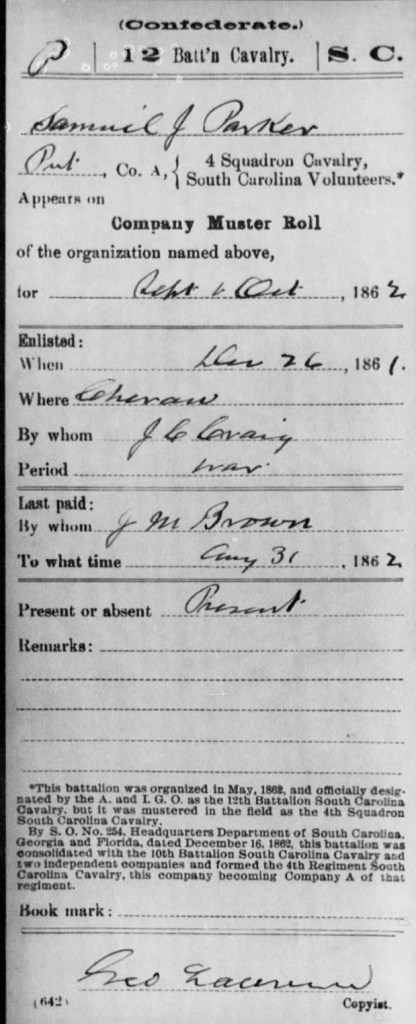 (Confederate.)
P | 12 Batt'n Cavalry. | S. C.
Samuel J Parker
Pvt, Co. A, { 4 Squadron Cavalry,
South Carolina Volunteers.*
Appears on
Company Muster Roll
of the organization named above,
for Sept & Oct, 1862
Enlisted:
When Dec 26, 1861.
Where Cheraw
By whom J C Craig
Period war
Last paid:
By whom J M Brown
To what time Aug 31, 1862
Present or absent Present
Remarks:
*This battalion was organized in May, 1862, and officially desig-
nated by the A. and I. G. O. as the 12th Battalion South Carolina
Cavalry, but it was mustered in the field as the 4th Squadron
South Carolina Cavalry.
By S. O. No. 254, Headquarters Department of South Carolina,
Georgia and Florida, dated December 16, 1862, this battalion was
consolidated with the 10th Battalion South Carolina Cavalry and
two independent companies and formed the 4th Regiment South
Carolina Cavalry, this company becoming Company A of that
regiment.
Book mark:
Geo
(642)
Copyist.